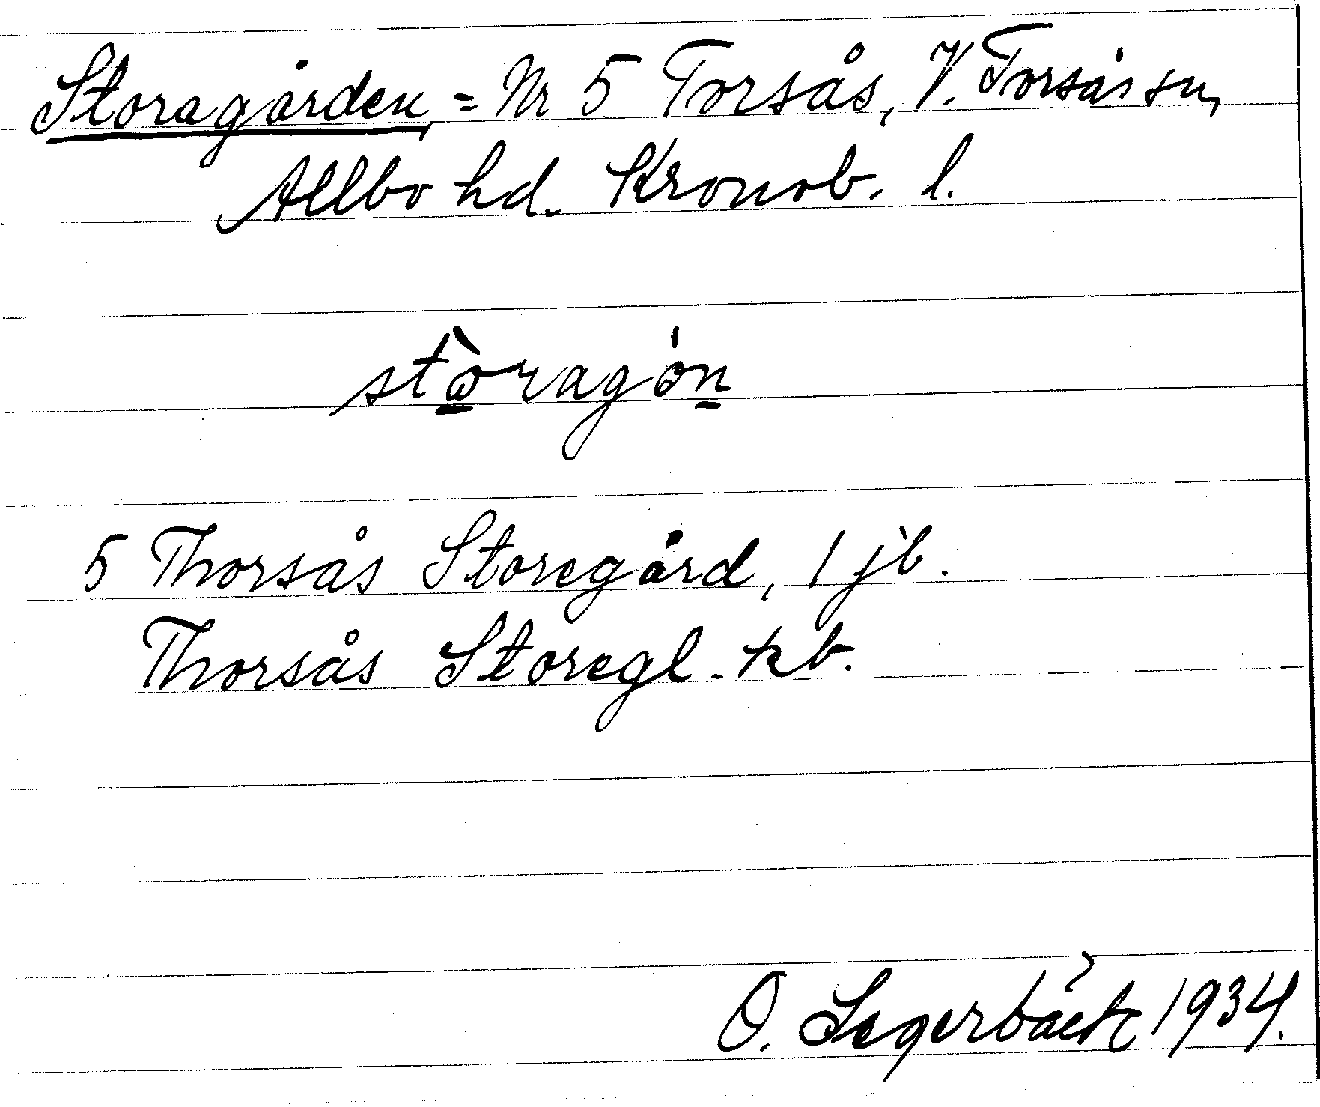 Storagården, = Nr 5 Torsås, V. Torsås sn,
Allbo hd. Kronob. l.
stòragón
5 Thorsås Storegård, 1 jb.
Thorsås Storegl. kb.
O. Segerbäck 1934.